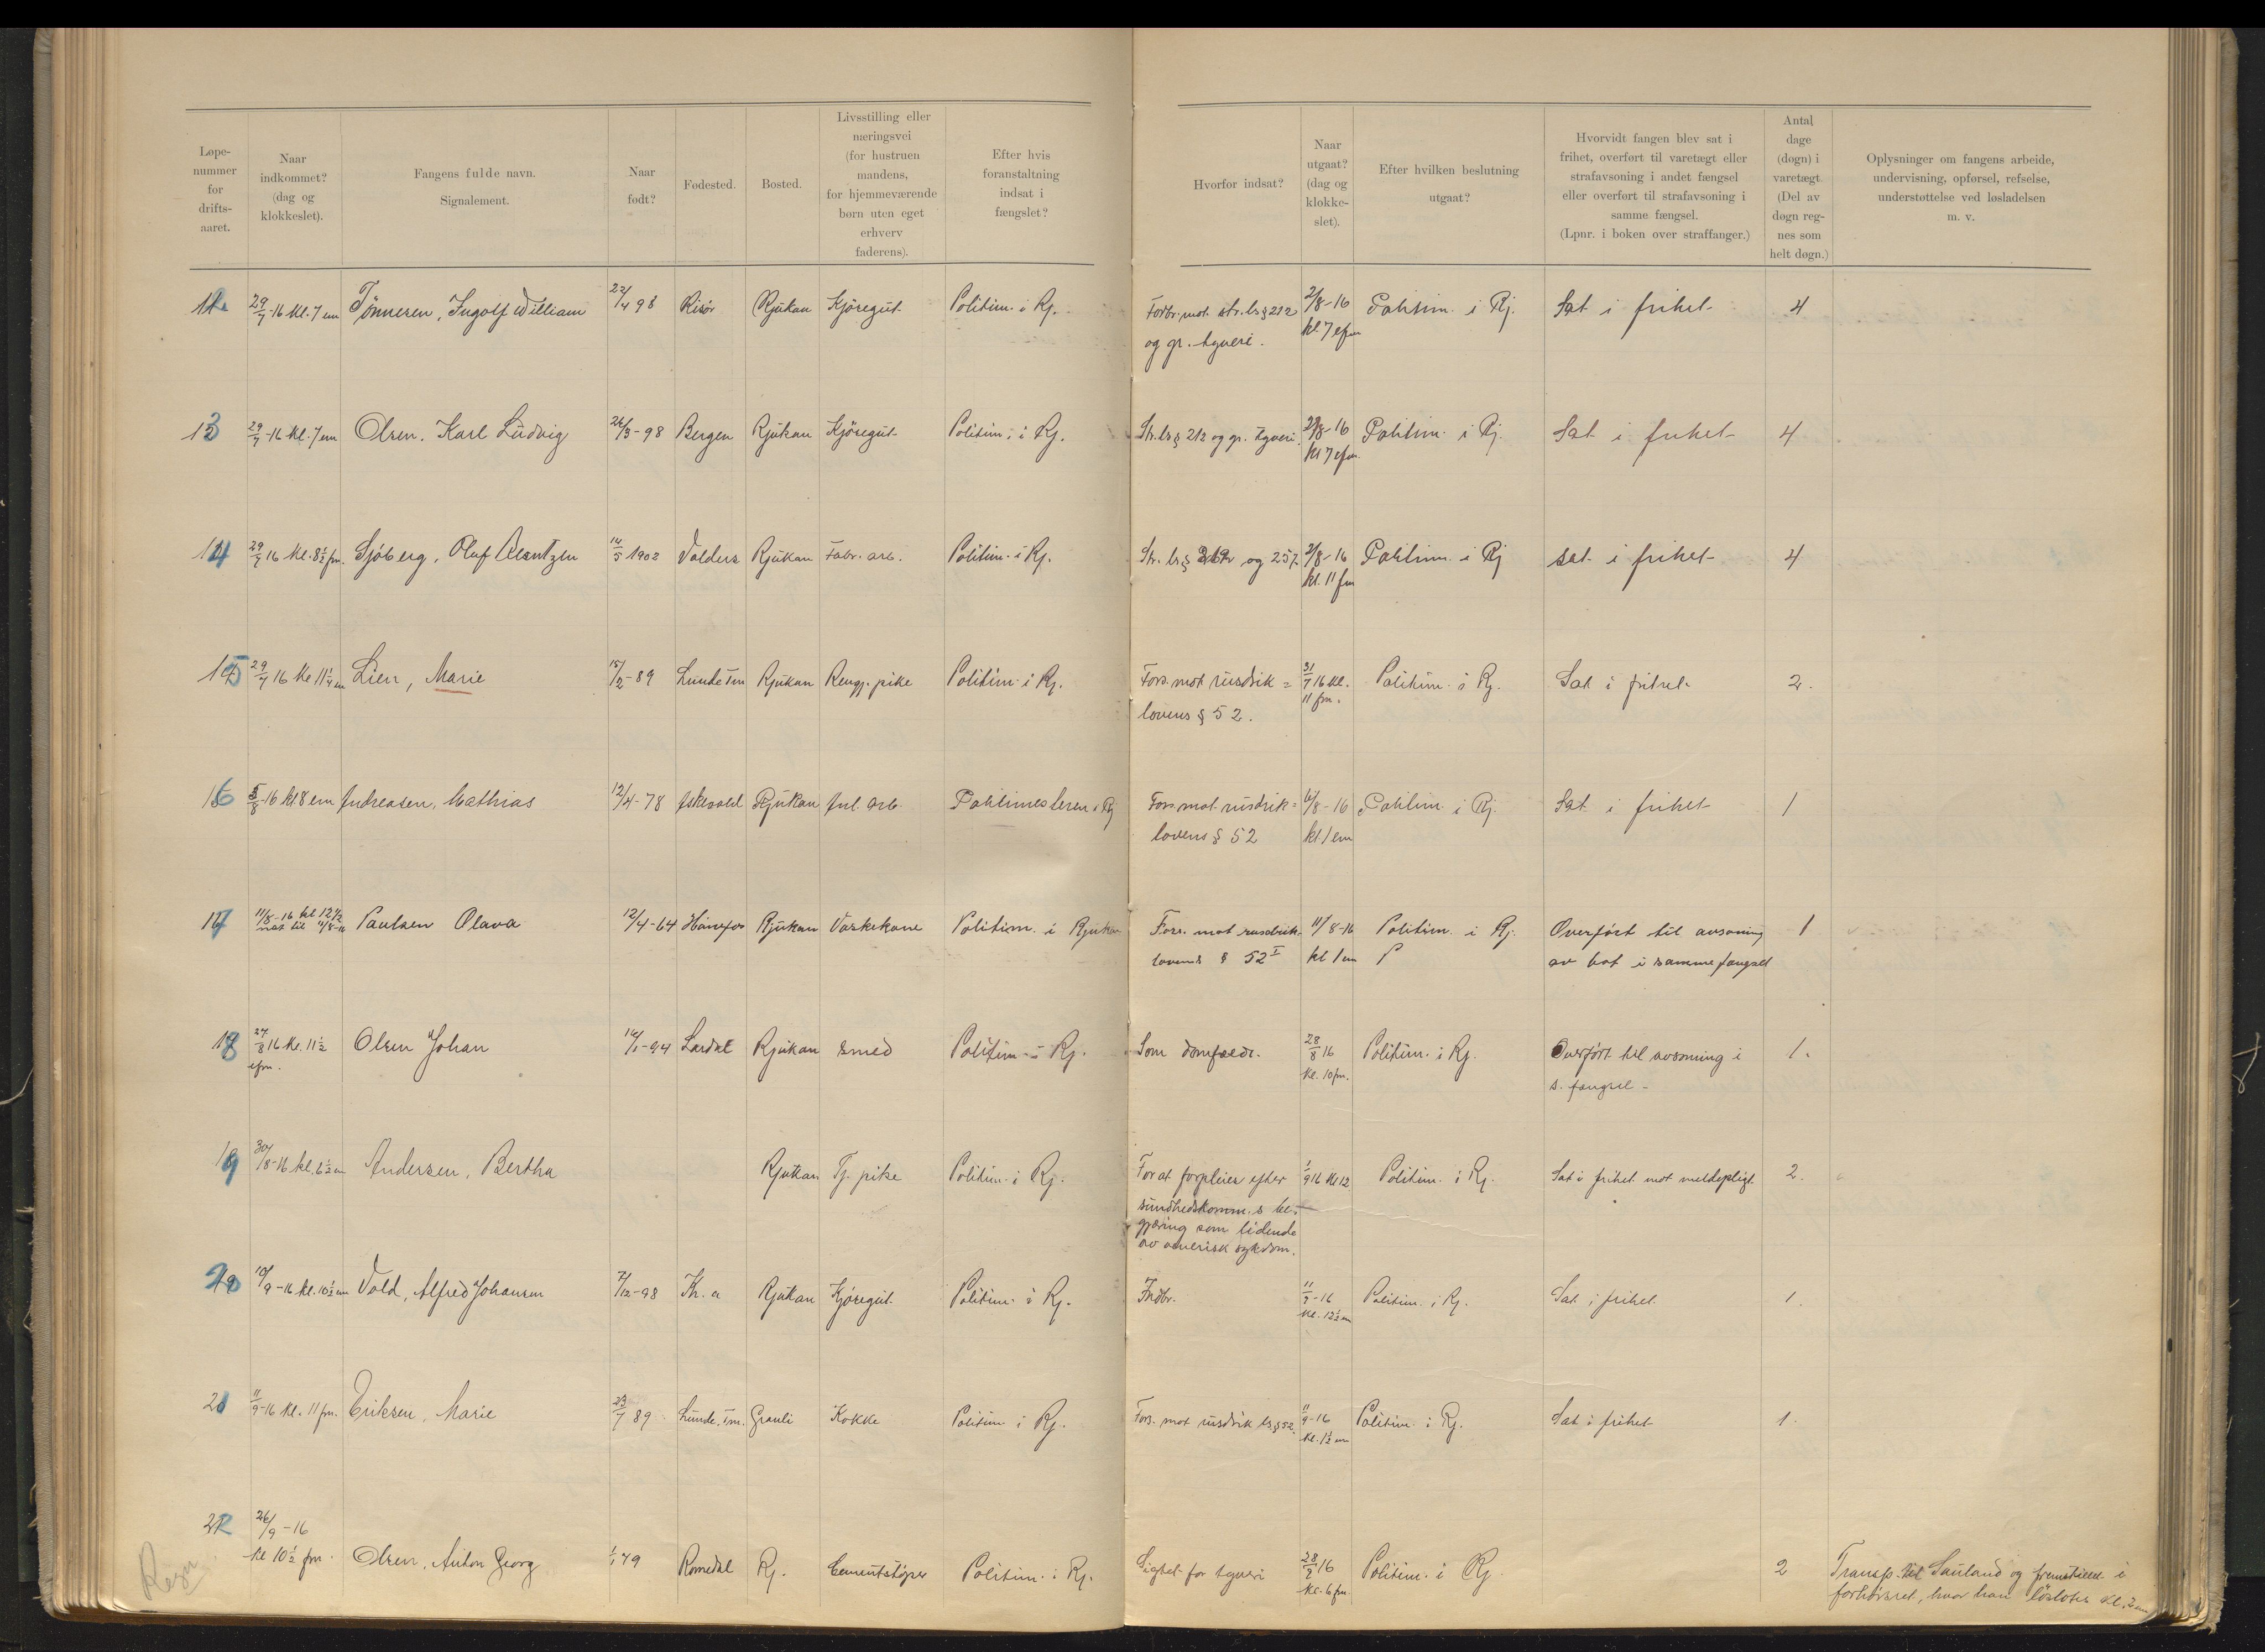 Løpe-
nummer
for
drifts-
aaret.
Naar
indkommet?
(dag og
klokkeslet).
Fangens fulde navn.
Signalement.
Naar
født?
Fødested.
Bosted.
Livsstilling eller
næringsvei
(for hustruen
mandens,
for hjemmeværende
børn uten eget
erhverv
faderens).
Efter hvis
foranstaltning
indsat i
fængslet?
Hvorfor indsat?
Naar
utgaat?
(dag og
klokke-
slet).
Efter hvilken beslutning
utgaat?
Hvorvidt fangen blev sat i
frihet, overført til varetægt eller
strafavsoning i andet fængsel
eller overført til strafavsoning i
samme fængsel.
(Lpnr. i boken over straffanger.)
Antal
dage
(døgn) i
varetægt.
(Del av
døgn reg-
nes som
helt døgn.)
Oplysninger om fangens arbeide,
undervisning, opførsel, refselse,
understøttelse ved løsladelsen
m. v.
29/7-16 kl. 7 em Tönnesen, Ingolf William 22/4 98 Risör Rjukan Kjöregut Politim. i Rj. Forbr. mot str. ls § 212 2/8-16 Politim. i Rj. Sat i frihet 4
og gr. tyveri. kl. 7 efm
13 29/7-16 kl. 7 em Olsen, Karl Ludvig 26/3-98 Bergen Rjukan Kjöregut Politim. i Rj. Str. ls § 212 og gr. tyveri. 2/8-16 Politim. i Rj. Sat i frihet 4
kl 7 efm.
14 29/7 16 kl. 8½ fm. Sjöberg, Oluf 14/5 1902 Valders Rjukan Fabr. arb. Politim. i Rj. Str. ls § og 257. 2/8-16 Politim. i Rj sat i frihet 4
kl. 11 fm
15 29/7 16 kl 11¼ em Lien, Marie 15/2-89 Lunde Tm Rjukan Rengj. pike Politim. i Rj. Fors. mot rusdrik= 31/7 16 kl. Politim. i Rj. Sat i frihet 2.
lovens § 52. 11 fm.
16 5/8-16 kl 8 em Andreasen, Mathias 12/4-78 Askevold Rjukan Anl. arb. Politimesteren i Rj Fors. mot rusdrik= 6/8-16 Politim. i Rj. Sat i frihet 1
lovens § 52 kl 1 em
17 11/8-16 kl 12½ Paulsen Olava 12/4-64 Rjukan Vaskekone Politim. i Rjukan Fors. mot rusdrik- 11/8-16 Politim. i Rj. Overfört til avsoning 1
nat til 11/8-16 lovens § 52 I kl 1 em av bot i samme fængsel
18 27/8 16 kl. 11½ Olsen Johan 14/1-94 Lardal Rjukan smed Politim. i Rj. Som domfældt. 28/8 16 Politim. i Rj. Overfört til avsoning i 1.
efm. kl. 10 fm. s. fængsel -
19 30/8-16 kl. 6½ em Andersen, Bertha Rjukan Tj. pike Politim. i Rj. For at forpleies efter 1/9 16 kl 12 Politim. i Rj. Sat i frihet mot meldepligt. 2.
sundhedskomm.s be-
gjæring som lidende
av venerisk sykdom.
20 10/9-16 kl. 10½ em Vold, Alfred Johansen 7/12-98 Kr. a Rjukan Kjöregut Politim. i Rj. Indbr. 11/9-16 Politim. i Rj. Sat i frihet 1.
kl. 12½ em
21 11/9-16 kl. 11 fm. Eriksen, Marie 23/7 89 Lunde, Tm. Grauli Kokke Politim. i Rj. Fors. mot rusdrik ls § 52. 11/9-16 Politim. i Rj. Sat i frihet 1.
kl. 1½ em
22 26/9-16
kl 10½ fm. Olsen, Anton Georg 1/1 79 Romedal Rj. Cementstöper Politim. i Rj. Sigtet for tyveri 28/9 16 Politim. i Rj 2 Transp. til Sauland og fremstillet i
kl. 6 fm. forhörsret, hvor han löslotes kl. 2 em